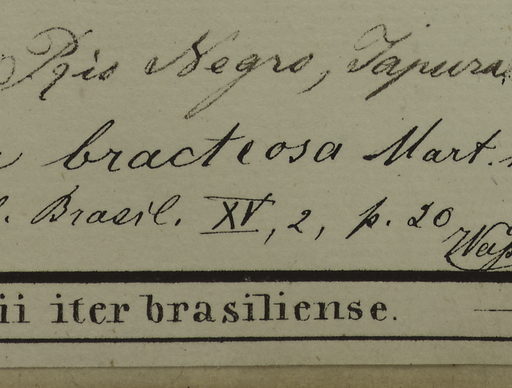 Rio Negro, Japura
bracteosa Mart.
Brasil. XV, 2, p. 20
ii iter brasiliense.